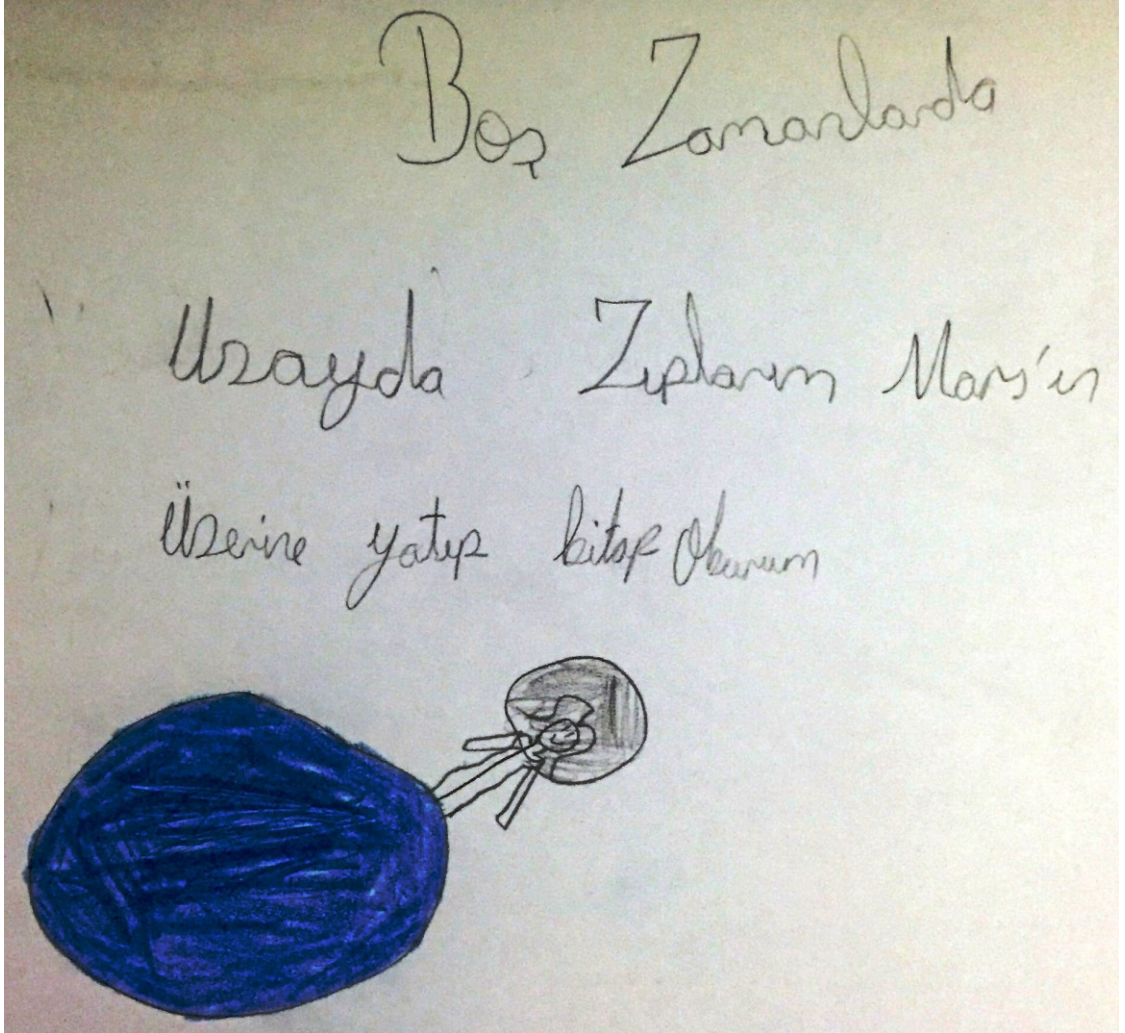 Boş Zamanlarda
Uzayda Zıplarım Mars'ın
Üzerine yatıp kitap Okurum